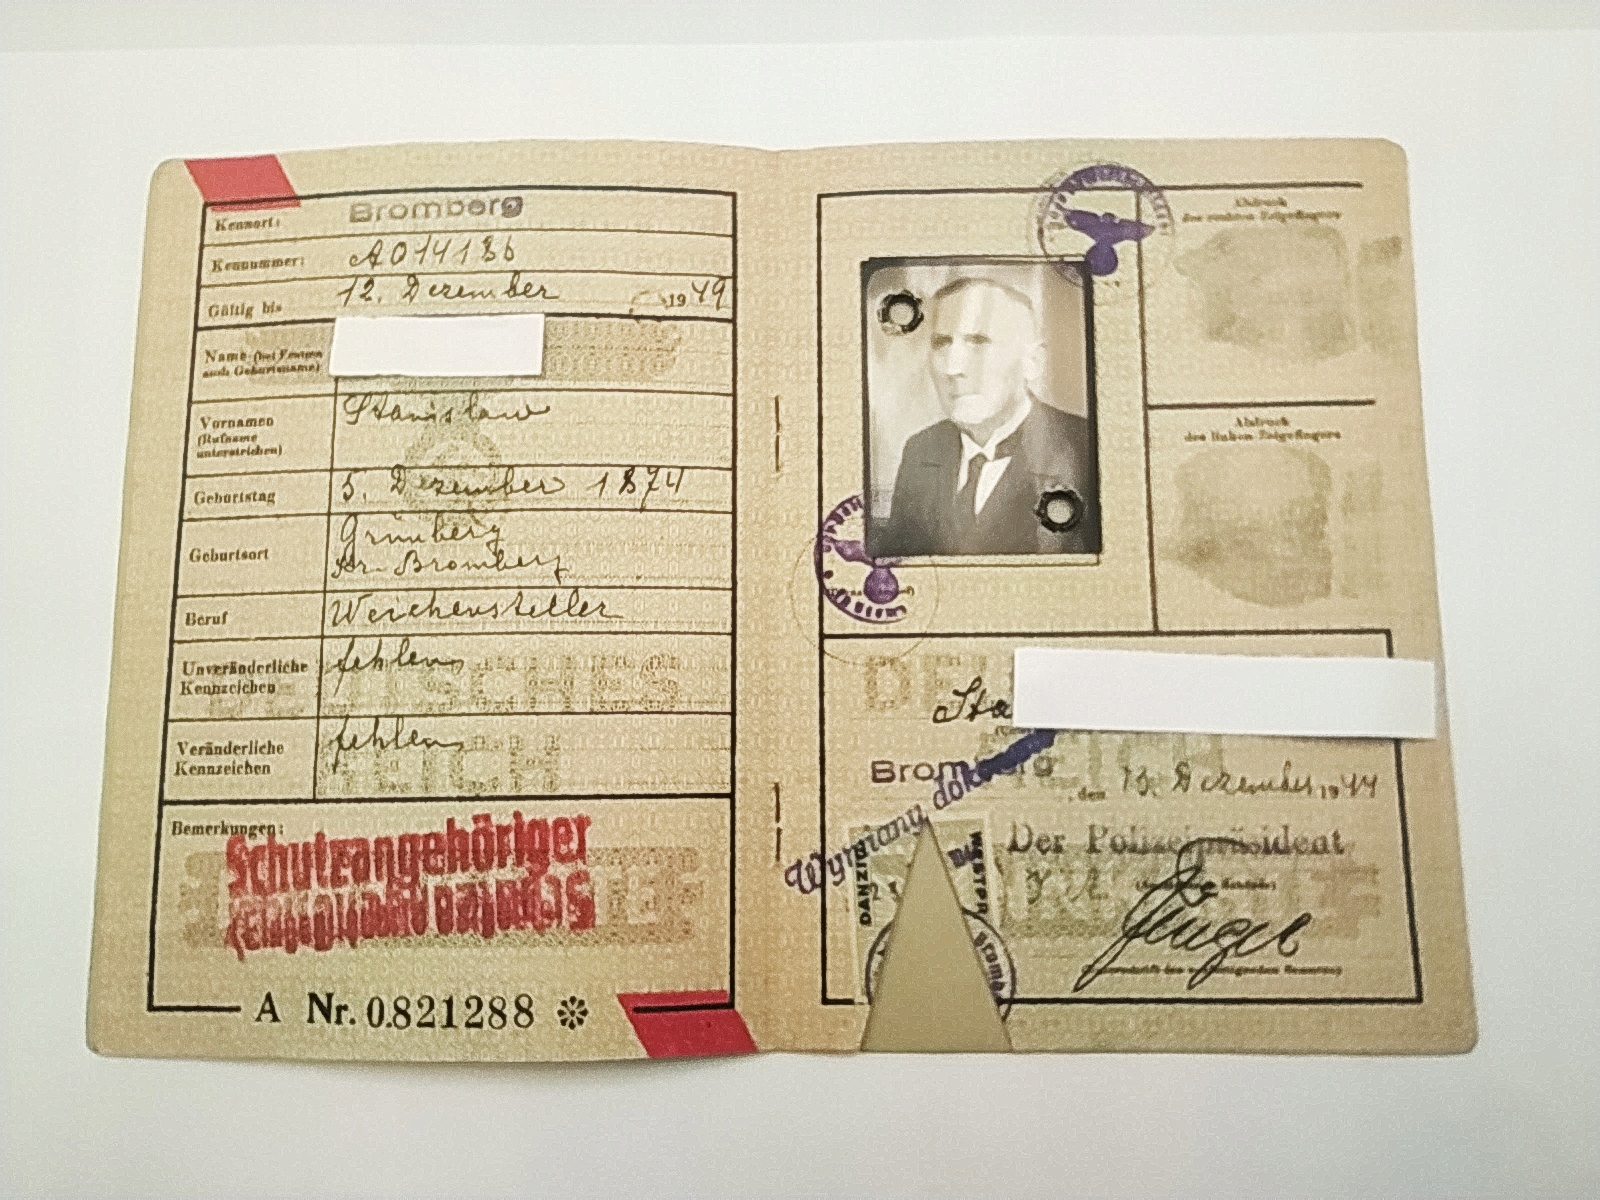 Kennort: Bromberg
Kennummer: A014136
Gültig bis 12. Dezember 1949
Name (bei Frauen
auch Geburtsname)
Vornamen Stanislaw
(Rufname
unterstreichen)
Geburtstag 5. Dezember 1874
Geburtsort Grünberg
Kr. Bromberg
Beruf Weichensteller
Unveränderliche fehlen
Kennzeichen
Veränderliche fehlen
Kennzeichen
DEUTSCHES
REICH
Bemerkungen:
Schutzangehöriger
A Nr. 0.821288
Abdruck
des rechten Zeigefingers
Abdruck
des linken Zeigefingers
Sta
Bromberg, den 13. Dezember 1944
Wymiany dok
DANZIG
WESTPR
Brombe
Der Polizeipräsident
(Unterschrift des ausfertigenden Beamten)